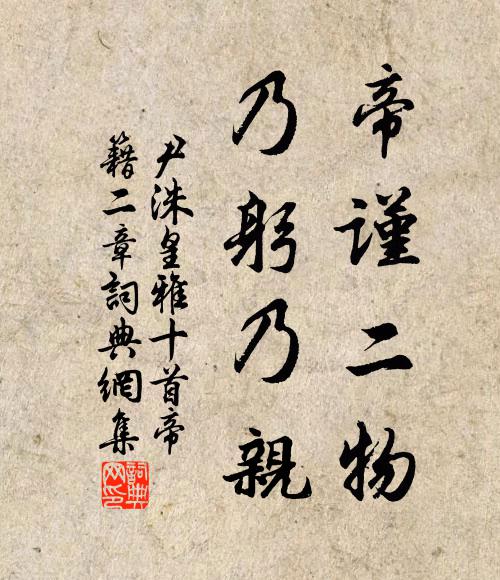 帝謹二物
乃躬乃親
尹洙皇雅十首帝
籍二章詞典網集
詞典网印